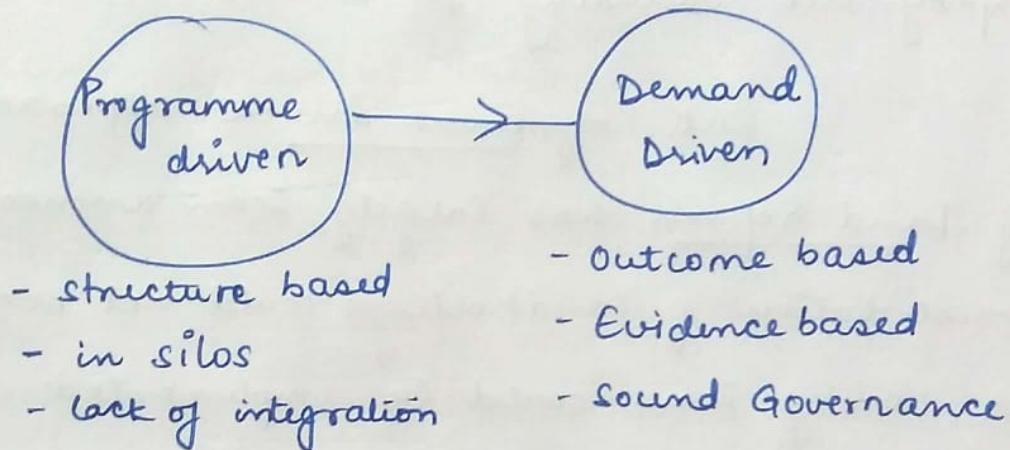 Programme
driven
Demand
Driven
- structure based
- in silos
- lack of integration
- Outcome based
- Evidence based
- Sound Governance